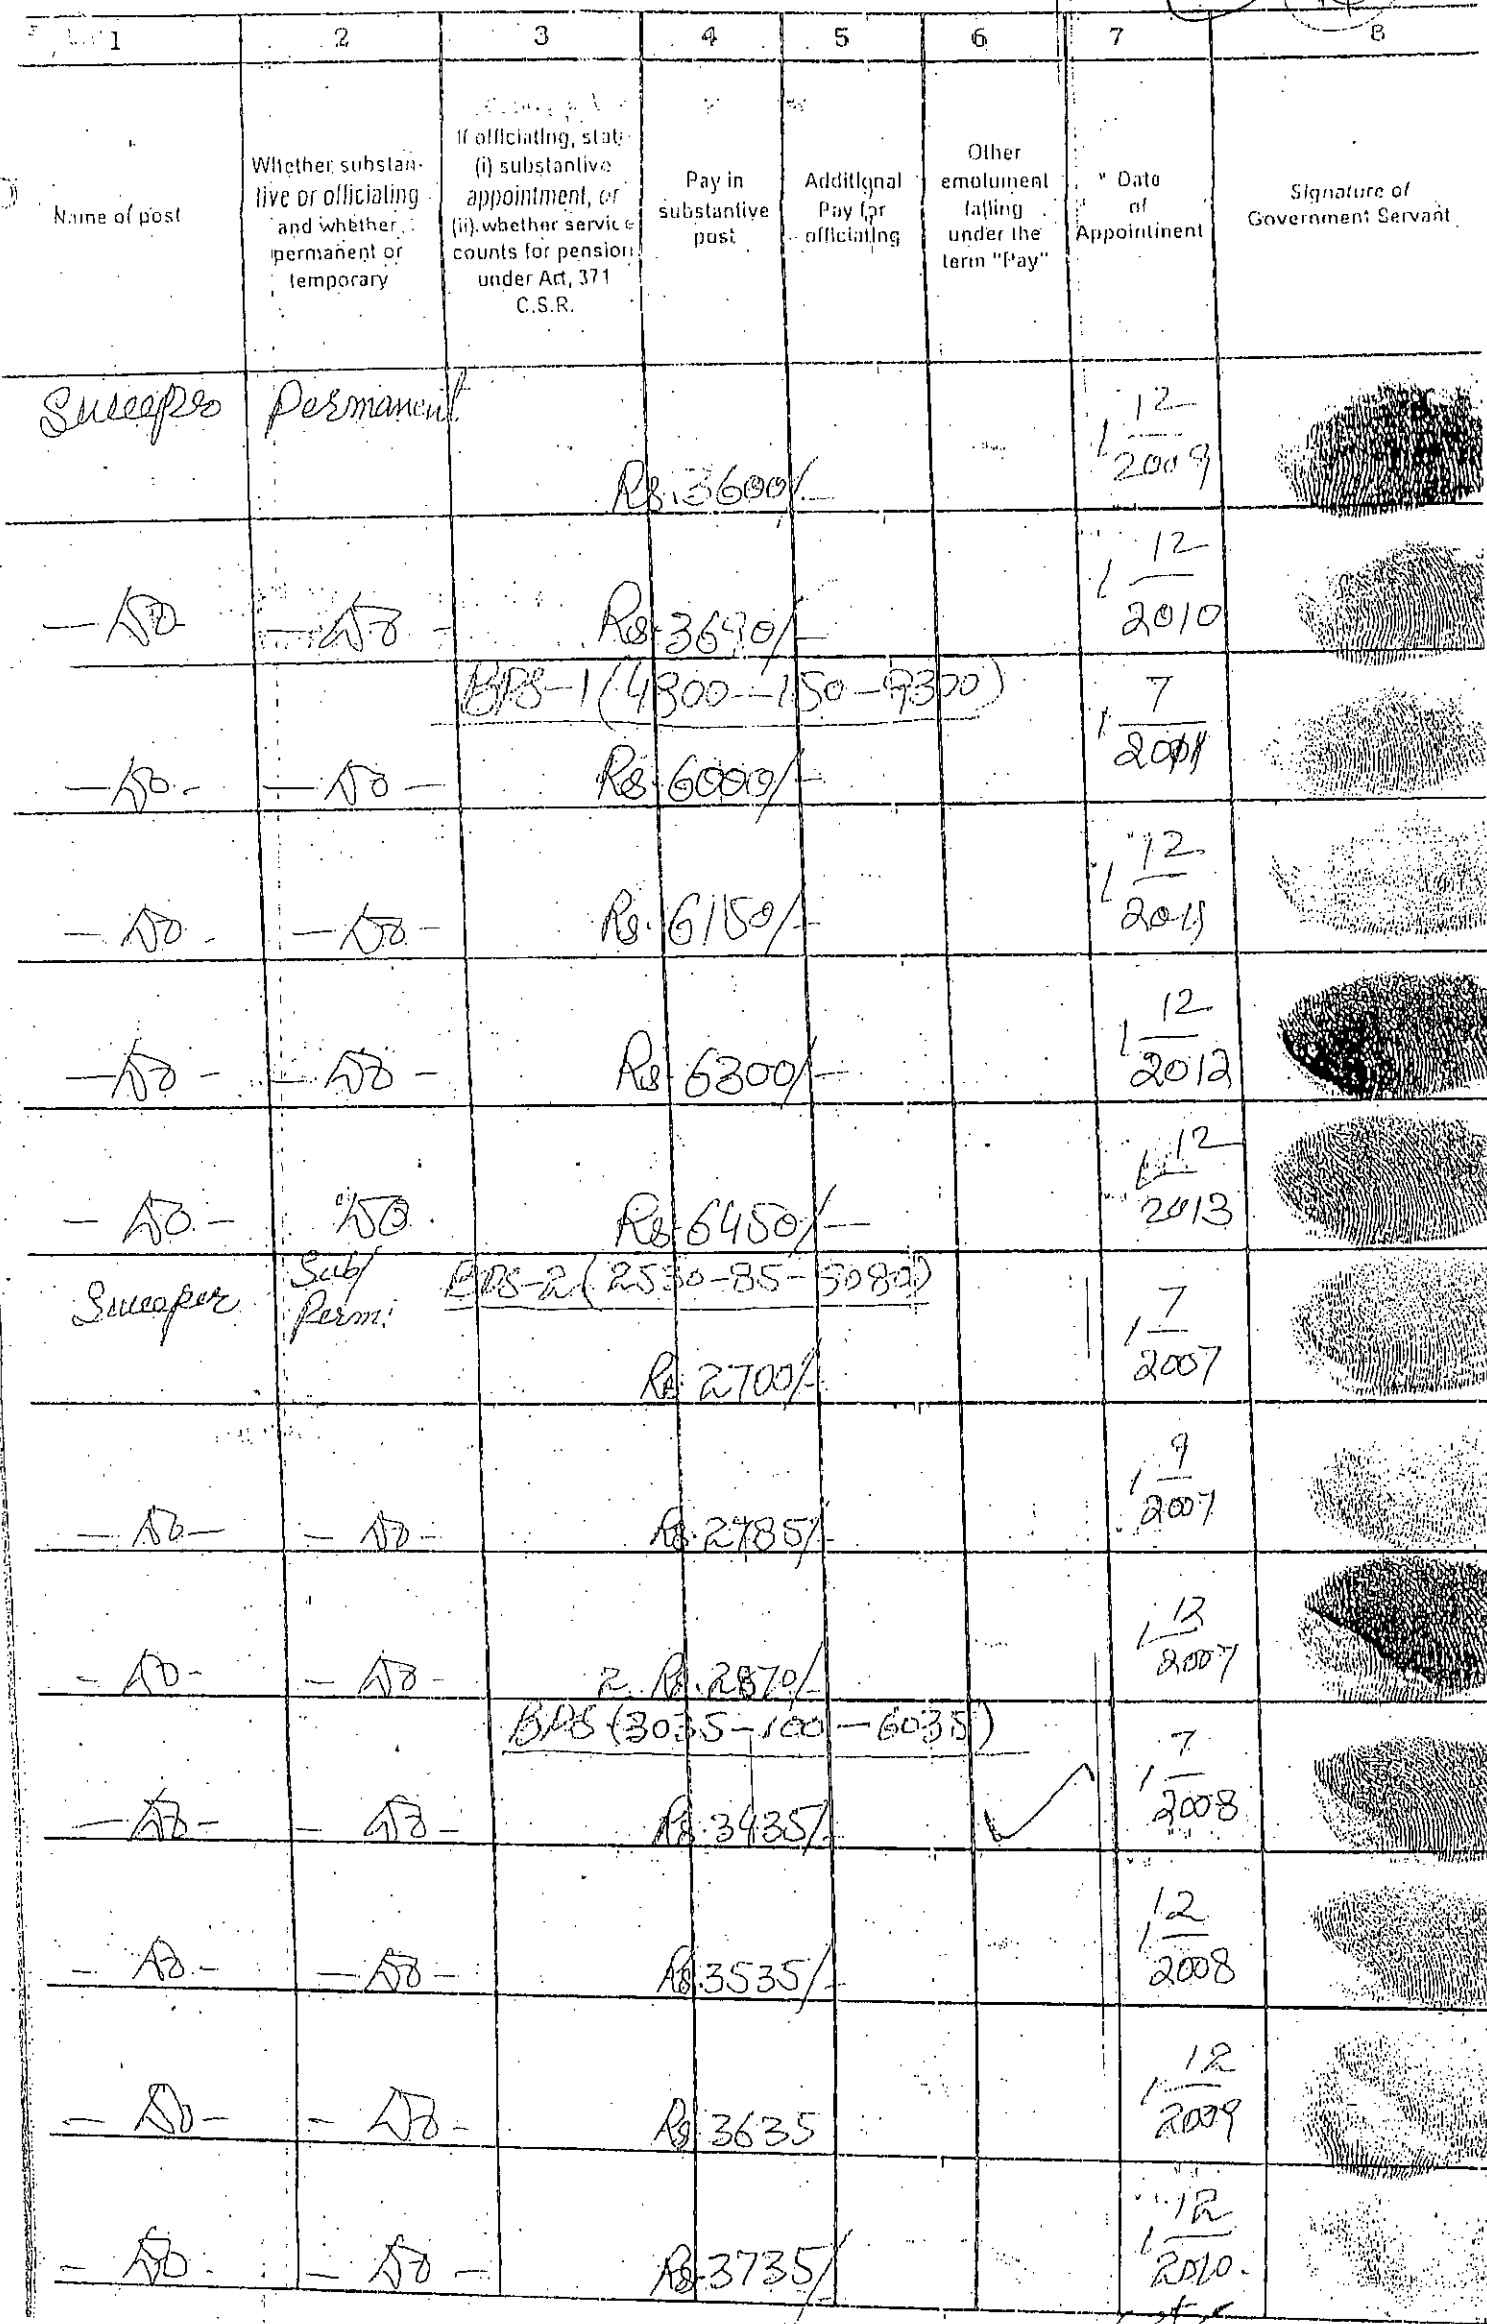 1 2 3 4 5 6 7 8
Name of post
Whether substan-
tive or officiating
and whether
permanent or
temporary
If officiating, state
(i) substantive
appointment, or
(ii) whether service
counts for pension
under Art, 371
C.S.R.
Pay in
substantive
post
Additional
Pay for
officiating
Other
emolument
falling
under the
term "Pay"
Date
of
Appointment
Signature of
Government Servant
Sweeper Permanent Rs.3600/- 1 12/2009
-Do- -Do- Rs.3690/- 1 12/2010
BPS-1 (4800-150-9300)
-Do- -Do- Rs.6000/- 1 7/2011
-Do- -Do- Rs.6150/- 1 12/2011
-Do- -Do- Rs.6300/- 1 12/2012
-Do- Do Rs.6450/- 1 12/2013
Sweeper Sub/ Perm: BPS-2 (2530-85-5080)
Rs.2700/- 1 7/2007
-Do- -Do- Rs.2785/- 1 9/2007
-Do- -Do- Rs.2870/- 1 12/2007
BPS (3035-100-6035)
-Do- -Do- Rs.3435/- 1 7/2008
-Do- -Do- Rs.3535/- 1 12/2008
-Do- -Do- Rs.3635 1 12/2009
-Do- -Do- Rs.3735/- 1 12/2010